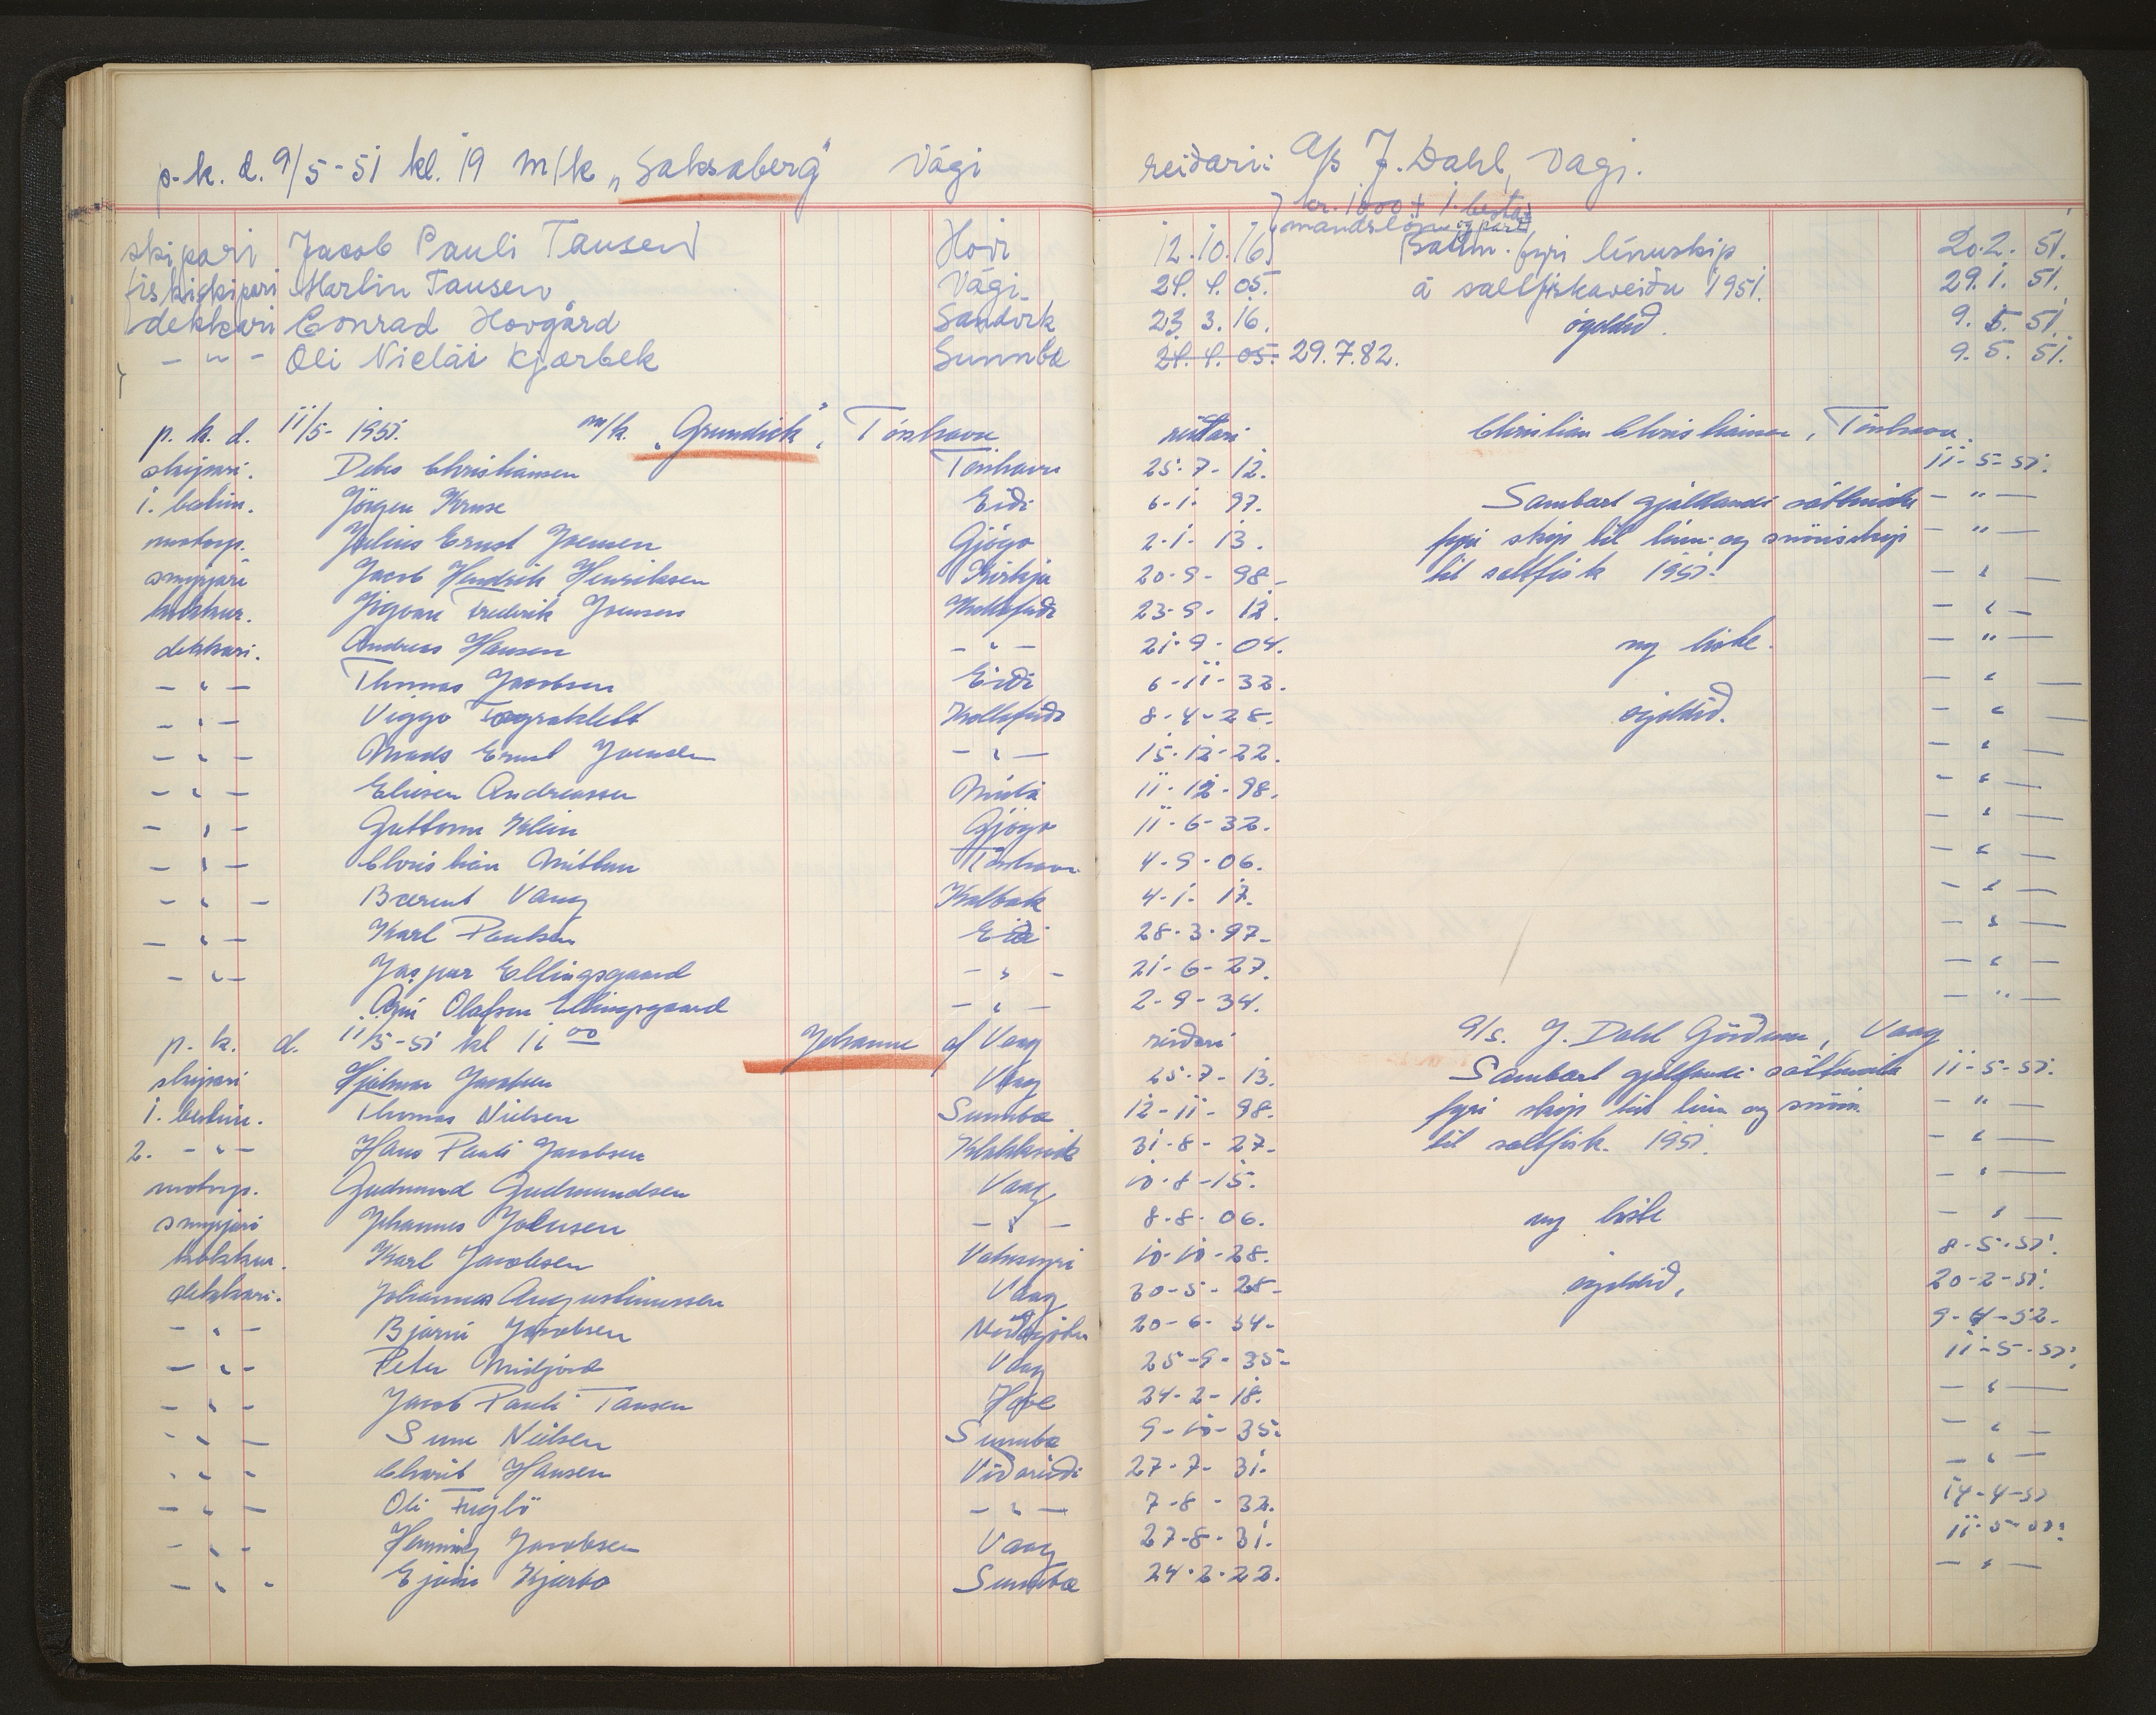 p.k.d. 9/5-51 kl. 19 m/k „Saksaberg" Vági reiðari: A/s J. Dahl, Vagi.
kr. 1000 + 1. bestm
skipari Jacob Pauli Tausen Hovi 12.10.16. mandslön Samn. fyri línuskip 20.2.51.
fiskiskipari Marlin Tausen Vági 24.4.05. á saltfiskaveiðu 1951. 29.1.51.
dekkari Conrad Hovgård Sandvik 23.3.16. ógoldið. 9.5.51.
- " - Oli Niclái Kjærbek Sunnbø 24.4.05. 29.7.82. 9.5.51.
p.k.d. 11/5-1951. m/k. „Grundick", Tórshavn reiðari Christian Christiansen, Tórshavn
skipari. Debes Christiansen Tórshavn 25-7-12. 11-5-51.
1. bestm. Jörgen Kruse Eiði 6-1-97. Sambart gjaldandi sáttmála - " -
motorp. Julius Ernst Joensen Gjógv 2-1-13. fyri skip til línu og snörisskip - " -
snyrjari Jacob Hendrik Henriksen Kirkja 20-9-98. til saltfisk 1951. - " -
kokkur. Frederik Joensen Kollafirði 23-9-12. - " -
dekkari. Andreas Hansen - " - 21-9-04. ny liste. - " -
- " - Thomas Jacobsen Eiði 6-11-32. - " -
- " - Viggo Fagraklett Kollafirði 8-4-28. ógoldið. - " -
- " - Mads Ernst Joensen - " - 15-12-22. - " -
- " - Eliesen Andreassen 11-12-98. - " -
- " - Guttorm Klein Gjógv 11-6-32. - " -
- " - Christian Mittun Tórshavn 4-9-06. - " -
- " - Bærent Vang Kalbak 4-1-17. - " -
- " - Karl Poulsen Eiði 28-3-97. - " -
- " - Jaspur Ellingsgaard - " - 21-6-27. - " -
Olafson Ellingsgaard - " - 2-9-34. - " -
p.k.d. 11/5-51 kl 11 00 Johanne af Vaag reiðari A/s. J. Dahl Vaag
skipari Hjalmar Jacobsen Vaag 25-7-13. Sambart gjaldandi sáttmála 11-5-51.
1. bestm. Thomas Nielsen Sumba 12-11-98. fyri skip til línu og snörri - " -
2. - " - Hans Pauli Jacobsen Klakksvik 31-8-27. til saltfisk. 1951. - " -
motorp. Gudmund Gudmundsen Vaag 10-8-15. - " -
snyrjari Johannes Joensen - " - 8-8-06. ny liste - " -
kokkur. Karl Jacobsen Vatnsoyri 10-10-28. 8-5-51.
dekkari. Johannes Augustinussen Vaag 30-5-28. ógoldið, 20-2-51.
- " - Bjarni Jacobsen Norðagøtu 20-6-34. 9-4-52.
- " - Peter Midjord Vaag 25-9-35. 11-5-51.
- " - Jacob Pauli Tausen Hove 24-2-18. - " -
- " - Sune Nielsen Sumba 9-10-35. - " -
- " - Charit Hansen Viðareiði 27-7-31. - " -
- " - Oli Fuglö - " - 7-8-32. 14-4-51
- " - Henning Jacobsen Vaag 27-8-31. 11-5-51.
- " - Kjærbo Sumba 24-2-22. - " -